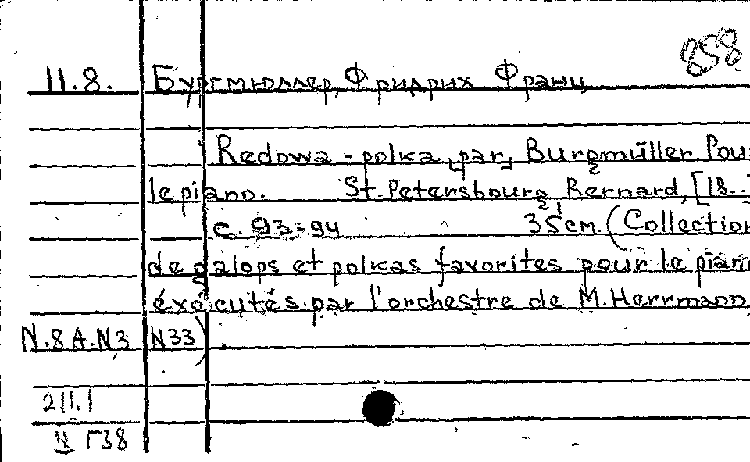 858
11.8. Бургмюллер, Фридрих Франц
Redowa-polka par Burgmüller Pour
le piano. St.Petersbourg, Bernard, [18..
с. 93-94 35cm. (Collection
de galops et polkas favorites pour le piano
éxécutés par l'orchestre de M.Herrmann,
N.8A.N3 N33).
211.1
Г38